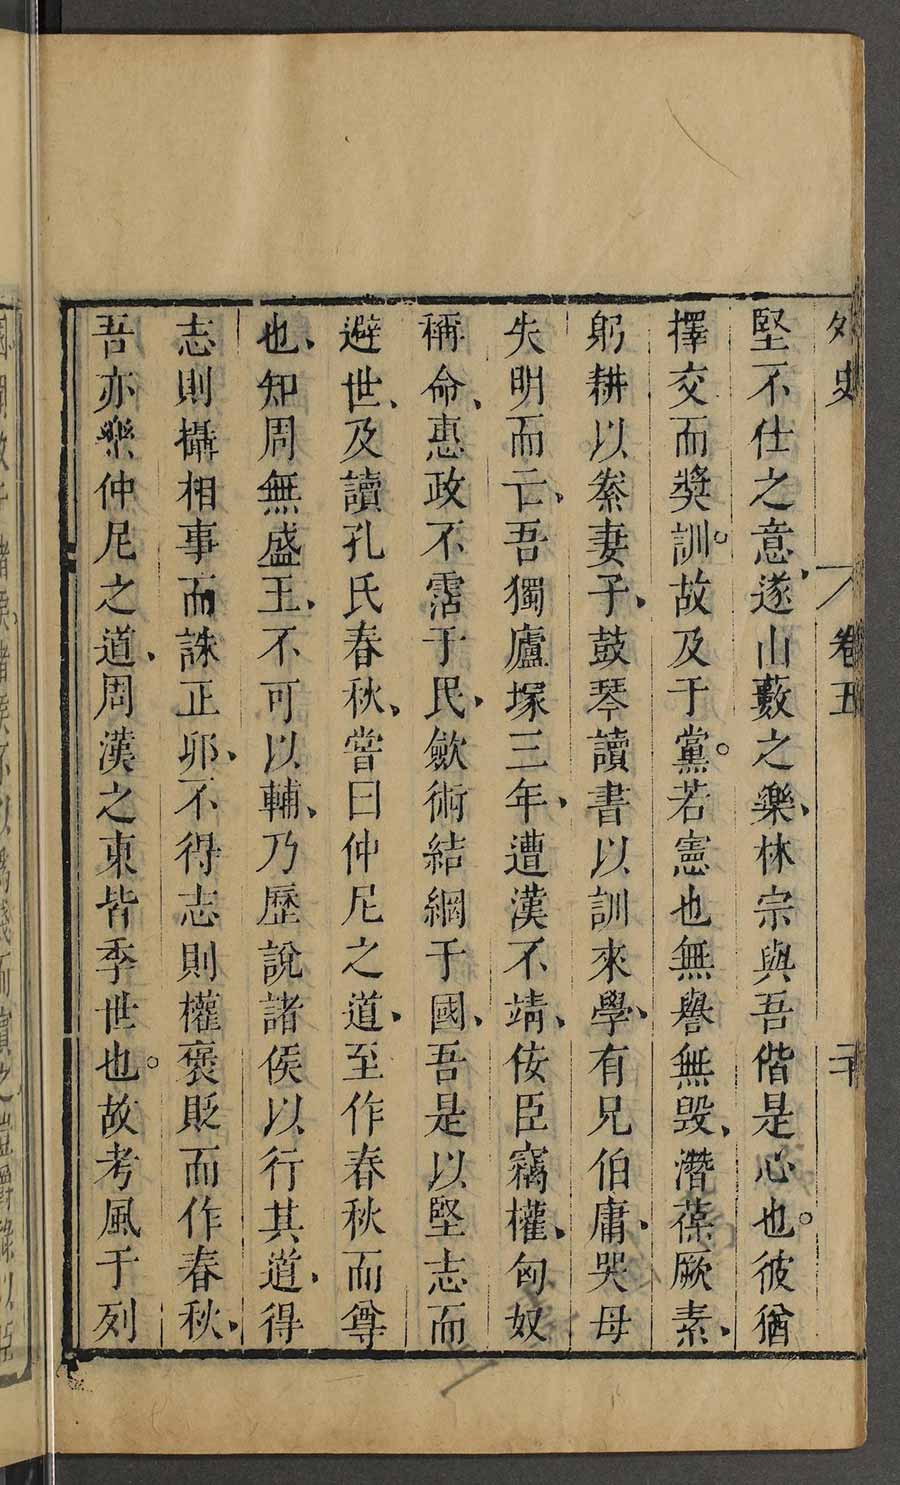 外史 卷五 二十
堅不仕之意、遂山藪之樂、林宗與吾偕是心也。彼猶
擇交而獎訓。故及于黨。若憲也無譽無毀、潛葆厥素、
躬耕以豢妻子、鼓琴讀書以訓來學、有兄伯庸、哭母
失明而亡、吾獨廬塚三年、遭漢不靖、佞臣竊權、匈奴
稱命、惠政不霑于民、斂術結網于國、吾是以堅志而
避世、及讀孔氏春秋、嘗曰仲尼之道、至作春秋而尊
也、知周無盛王、不可以輔、乃歷說諸侯以行其道、得
志則攝相事而誅正卯、不得志則權褒貶而作春秋、
吾亦樂仲尼之道、周漢之東皆季世也。故考風于列